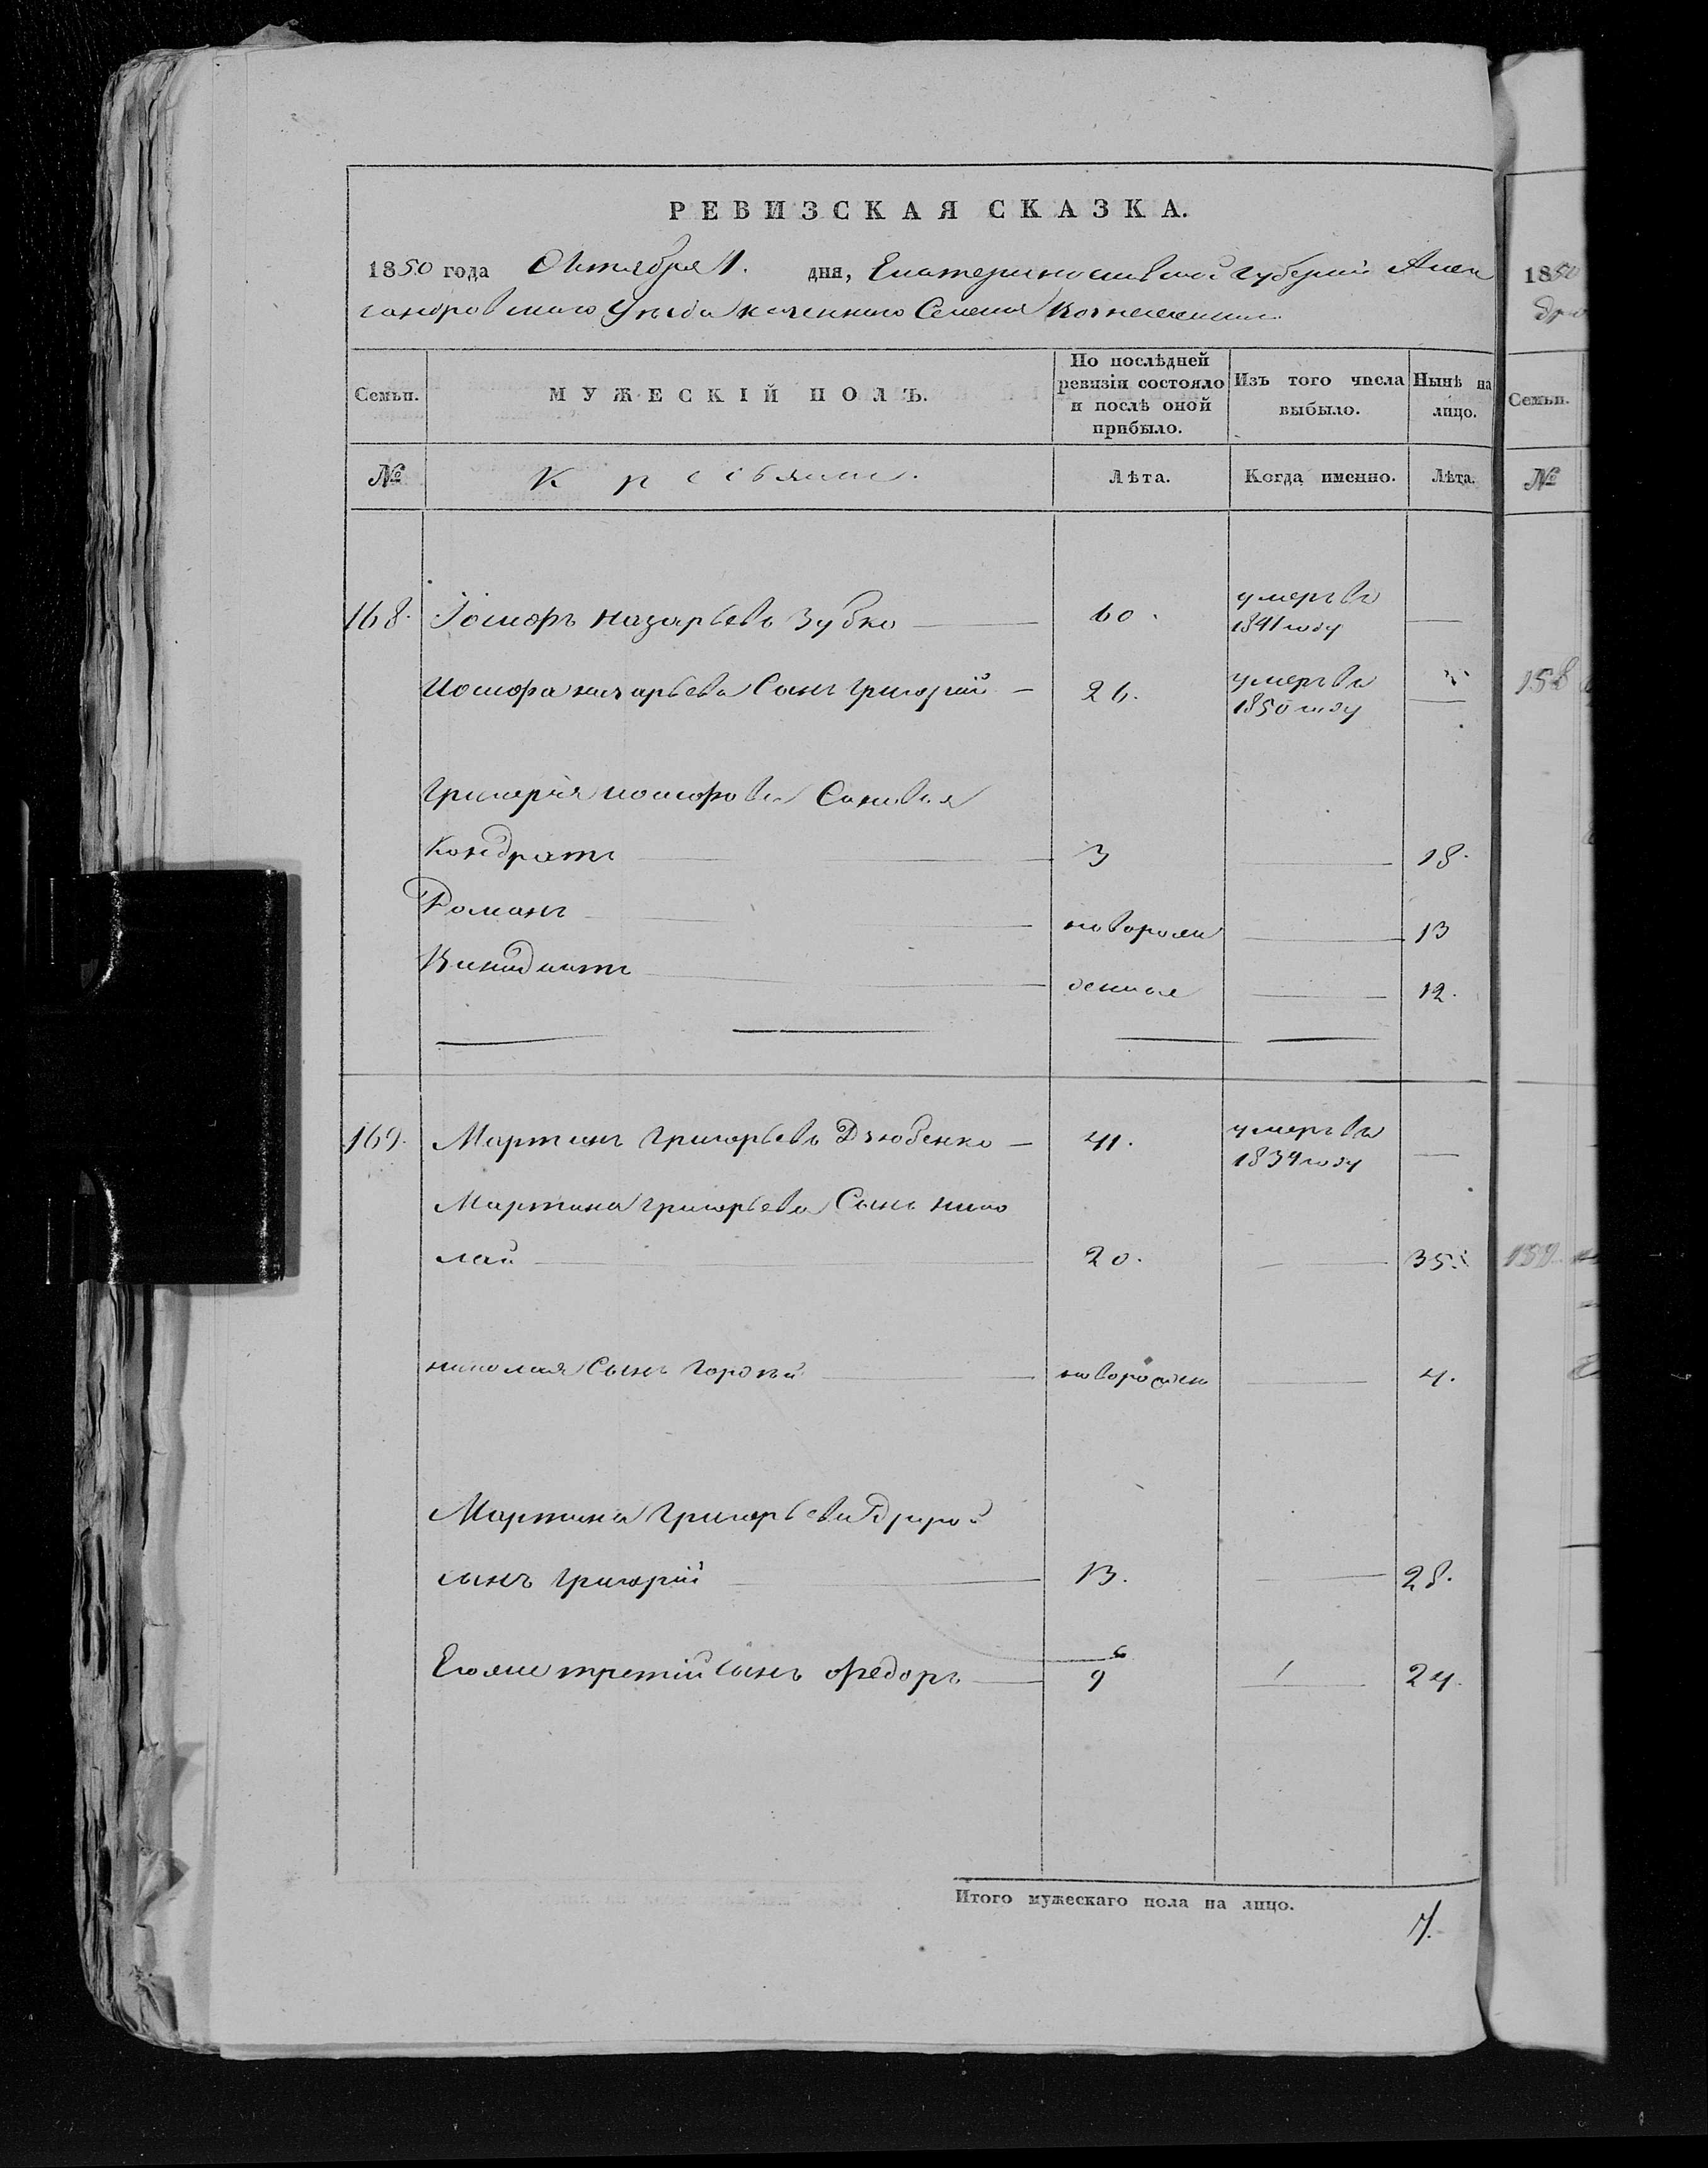 РЕВИЗСКАЯ СКАЗКА.
1850 года Октября 1. дня, Екатеринославской Губернии Алек
сандровского Уезда казенного Селения Вознесенки
Семьи. МУЖЕСКІЙ ПОЛЪ. По послѣдней ревизіи состояло и послѣ оной прибыло. Изъ того числа выбыло. Нынѣ на лицо.
№ Крестьяне. Лѣта. Когда именно. Лѣта.
168. Іосифъ Назарьевъ Зубко 60. умеръ въ 1841 году
Иосифа назарьева Сынъ григорий 26. умеръ въ 1850 году
григорія иосифова Сыновья
Кондратъ 3 18.
Романъ новорож 13
Викидинтъ денные 12.
169. Мартинъ григорьевъ Дзюбенко 41. умеръ въ 1834 году
Мартина григорьева Сынъ нико
лай 20. 35.
николая Сынъ гордѣй новорожден 4.
Мартина григорьева другой
сынъ григорій 13. 28.
Его же третій сынъ федоръ 9 24.
Итого мужескаго пола на лицо. 7.
1850
дро
Семьи.
№
158
159